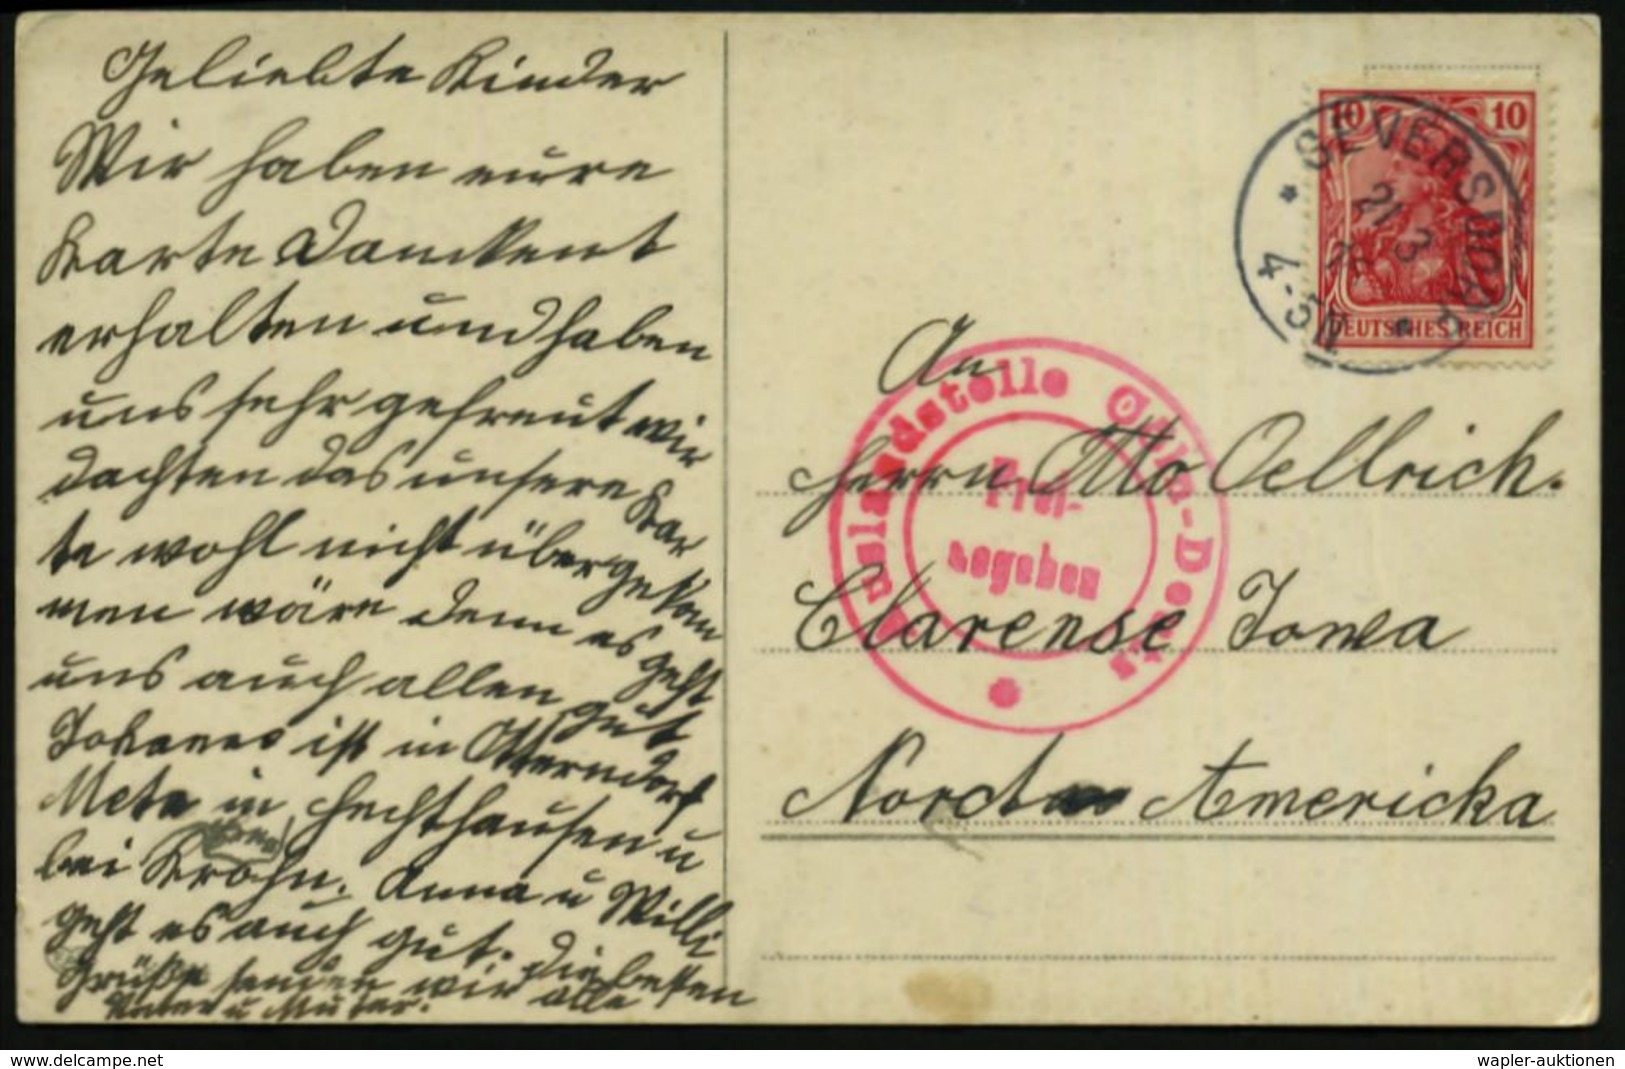 Geliebte Kinder
Wir haben eure
Karte Danckent
erhalten und haben
uns sehr gefreut wir
dachten das unsere Kar
te wohl nicht übergekom
men wäre denn es geht
uns auch allen gut
Johanes ist in Otterndorf
Meta in Hechthausen u
bei Krohn. Anna u Willi
geht es auch gut. Die besten
Grüße senden wir alle
Vater u Mutter.
10 10
DEUTSCHES REICH
* GEVERSDORF *
21 3
4-5 N
Auslandstelle Cöln-Deutz
Frei-
gegeben
An
Herrn Otto Oellrich.
Clarense Iowa
Nord Americka
delcampe.net
wapler-auktionen